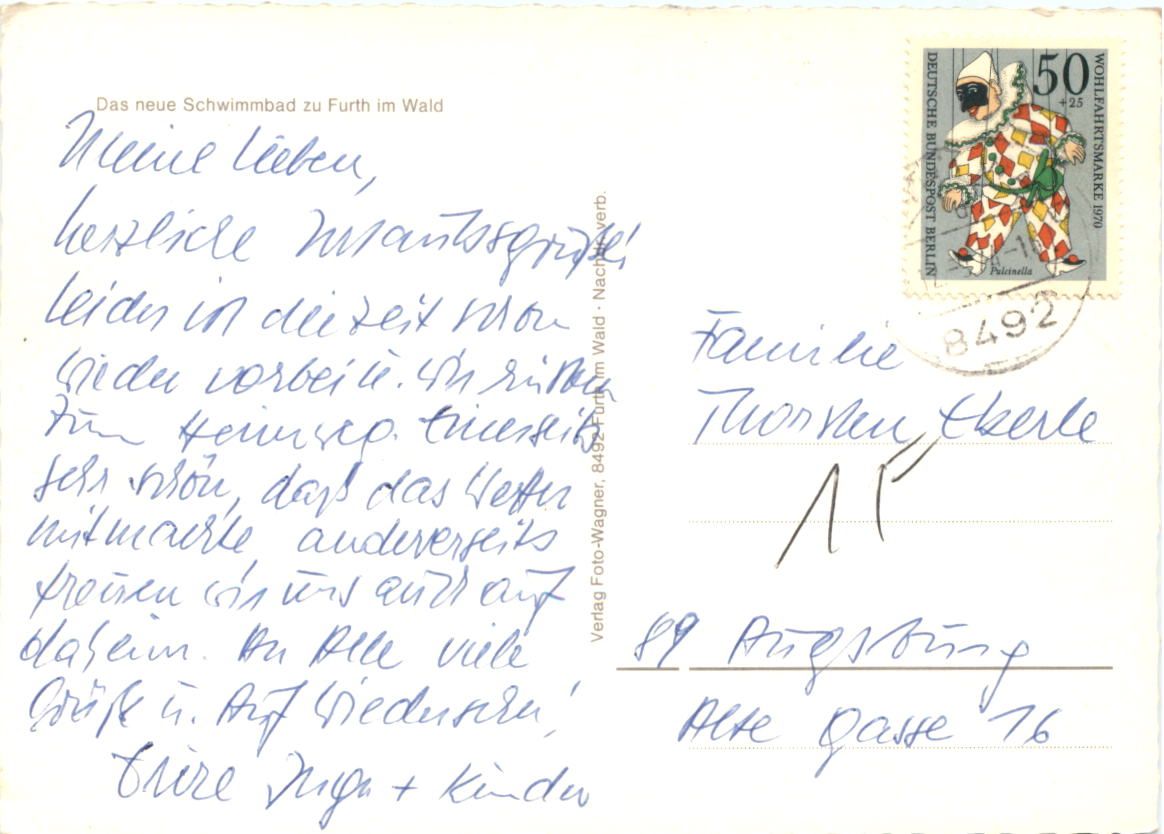 Das neue Schwimmbad zu Furth im Wald
Meine Lieben,
herzliche Urlaubsgrüße!
Leider ist die Zeit schon
wieder vorbei u. wir rüsten
zum Heimweg. Einerseits
sehr schön, daß das Wetter
mitmachte, andererseits
freuen wir uns auch auf
daheim. An Alle viele
Grüße u. Auf Wiedersehen!
Eure Inge + Kinder
Verlag Foto-Wagner, 8492 Furth im Wald · Nachdr. verb.
50
+25
WOHLFAHRTSMARKE 1970
DEUTSCHE BUNDESPOST BERLIN
Pulcinella
8492
Familie
Thorsten Eberle
15
89 Augsburg
Alte Gasse 16